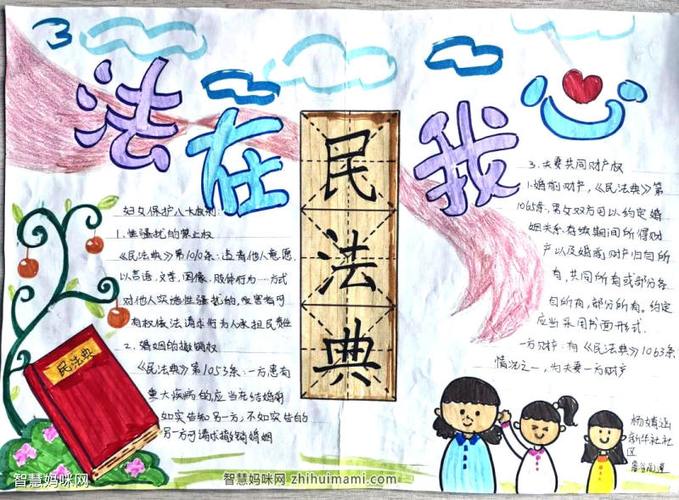 3
法在我心
民法典
妇女保护八大权利:
1. 性骚扰的禁止权
《民法典》第1010条: 违背他人意愿
以言语,文字,图像,肢体行为 方式
对他人实施性骚扰的,受害者可
有权依法请求行为人承担民事责任
2. 婚姻的撤销权
《民法典》第1053条: 一方患有
重大疾病的,应当在结婚前
如实告知另一方,不如实告知的
另一方可请求撤销婚姻
3.夫妻共同财产权
1.婚前财产,《民法典》第
1065条,男女双方可以约定婚
姻关系存续期间所得财
产以及婚前财产归各自所
有,共同所有或部分各
自所有,部分所有。约定
应当采用书面形式.
一方财产:有《民法典》1063条
情况之一,为夫妻一方财产
民法典
新华社社
区
智慧妈咪网
智慧妈咪网 zhihuimami.com